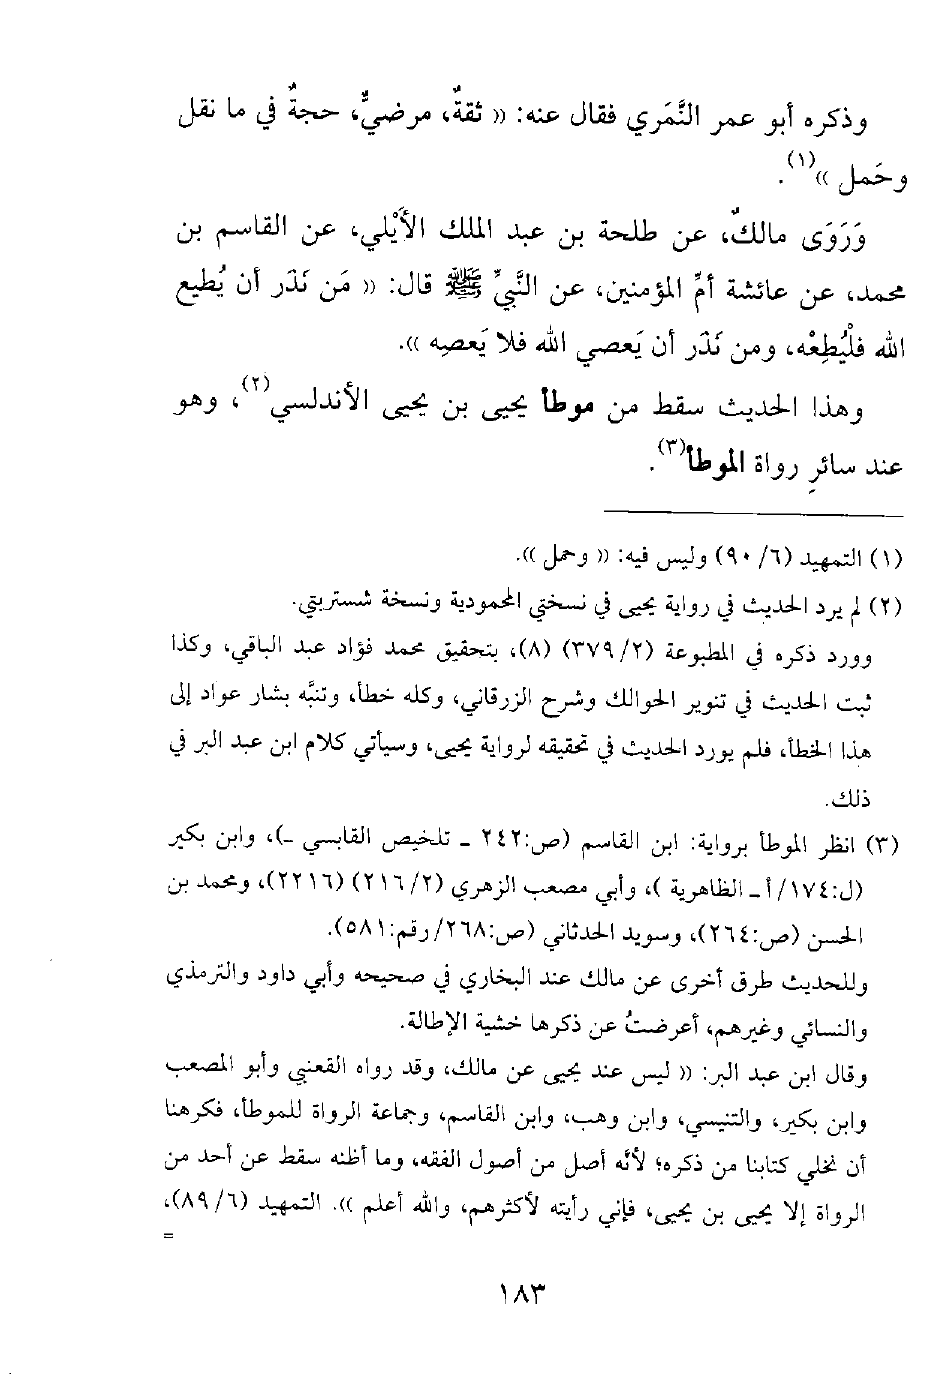 وذكره أبو عمر النَّمَري فقال عنه: « ثقةٌ، مرضيٌّ، حجةٌ في ما نقل
وحَمل »(١).
وَرَوَى مالكٌ، عن طلحة بن عبد الملك الأَيْلي، عن القاسم بن
محمد، عن عائشة أمِّ المؤمنين، عن النَّبيِّ ﷺ قال: « مَن نَذَر أن يُطيع
الله فلْيُطِعْه، ومن نَذَر أن يَعصي الله فلا يَعصِه ».
وهذا الحديث سقط من موطأ يحيى بن يحيى الأندلسي(٢)، وهو
عند سائرِ رواة الموطأ(٣).
(١) التمهيد (٦/ ٩٠) وليس فيه: « وحمل ».
(٢) لم يرد الحديث في رواية يحيى في نسختي المحمودية ونسخة شستربتي.
وورد ذكره في المطبوعة (٢/ ٣٧٩) (٨)، بتحقيق محمد فؤاد عبد الباقي، وكذا
ثبت الحديث في تنوير الحوالك وشرح الزرقاني، وكله خطأ، وتنبَّه بشار عواد إلى
هذا الخطأ، فلم يورد الحديث في تحقيقه لرواية يحيى، وسيأتي كلام ابن عبد البر في
ذلك.
(٣) انظر الموطأ برواية: ابن القاسم (ص:٢٤٢ ـ تلخيص القابسي ـ)، وابن بكير
(ل:١٧٤/أ ـ الظاهرية )، وأبي مصعب الزهري (٢/ ٢١٦) (٢٢١٦)، ومحمد بن
الحسن (ص:٢٦٤)، وسويد الحدثاني (ص:٢٦٨/رقم:٥٨١).
وللحديث طرق أخرى عن مالك عند البخاري في صحيحه وأبي داود والترمذي
والنسائي وغيرهم، أعرضتُ عن ذكرها خشية الإطالة.
وقال ابن عبد البر: « ليس عند يحيى عن مالك، وقد رواه القعنبي وأبو المصعب
وابن بكير، والتنيسي، وابن وهب، وابن القاسم، وجماعة الرواة للموطأ، فكرهنا
أن نخلي كتابنا من ذكره؛ لأنّه أصل من أصول الفقه، وما أظنه سقط عن أحد من
الرواة إلا يحيى بن يحيى، فإني رأيته لأكثرهم، والله أعلم ». التمهيد (٦/ ٨٩)،
=
١٨٣